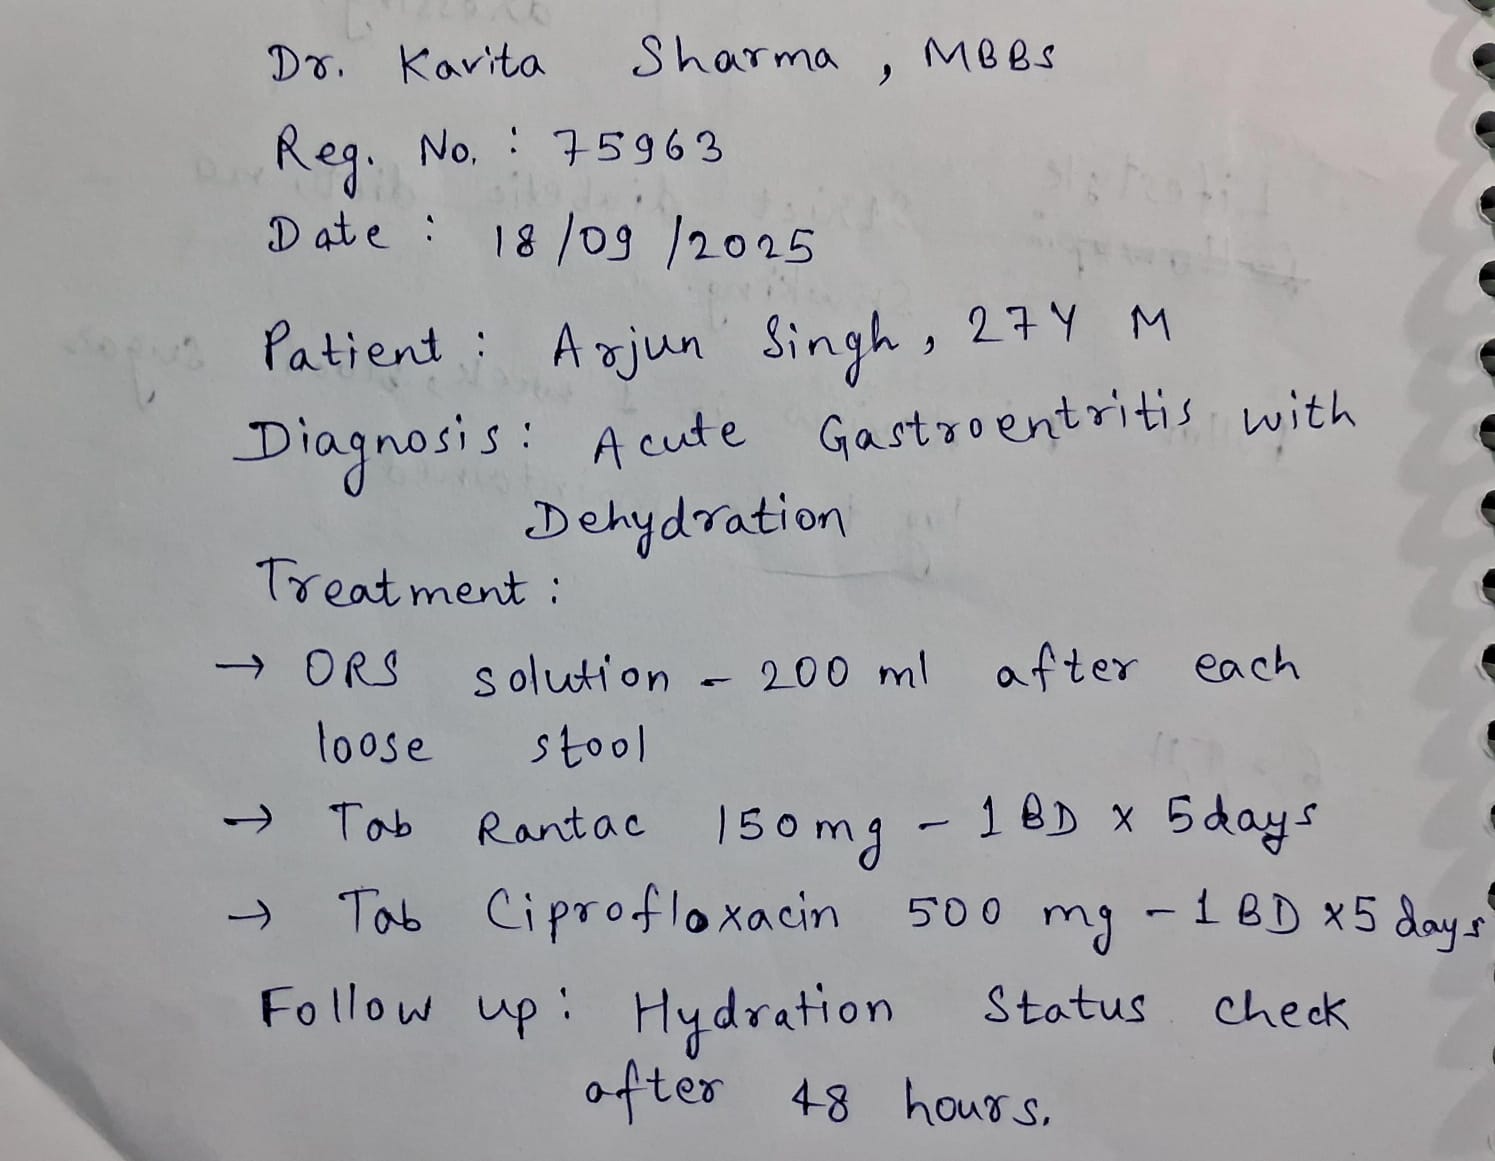 Dr. Kavita Sharma, MBBS
Reg. No. : 75963
Date : 18/09/2025
Patient : Arjun Singh, 27Y M
Diagnosis : Acute Gastroentritis with
Dehydration
Treatment :
→ ORS solution - 200 ml after each
loose stool
→ Tab Rantac 150mg - 1 BD x 5days
→ Tab Ciprofloxacin 500 mg - 1 BD x5 days
Follow up : Hydration Status check
after 48 hours.